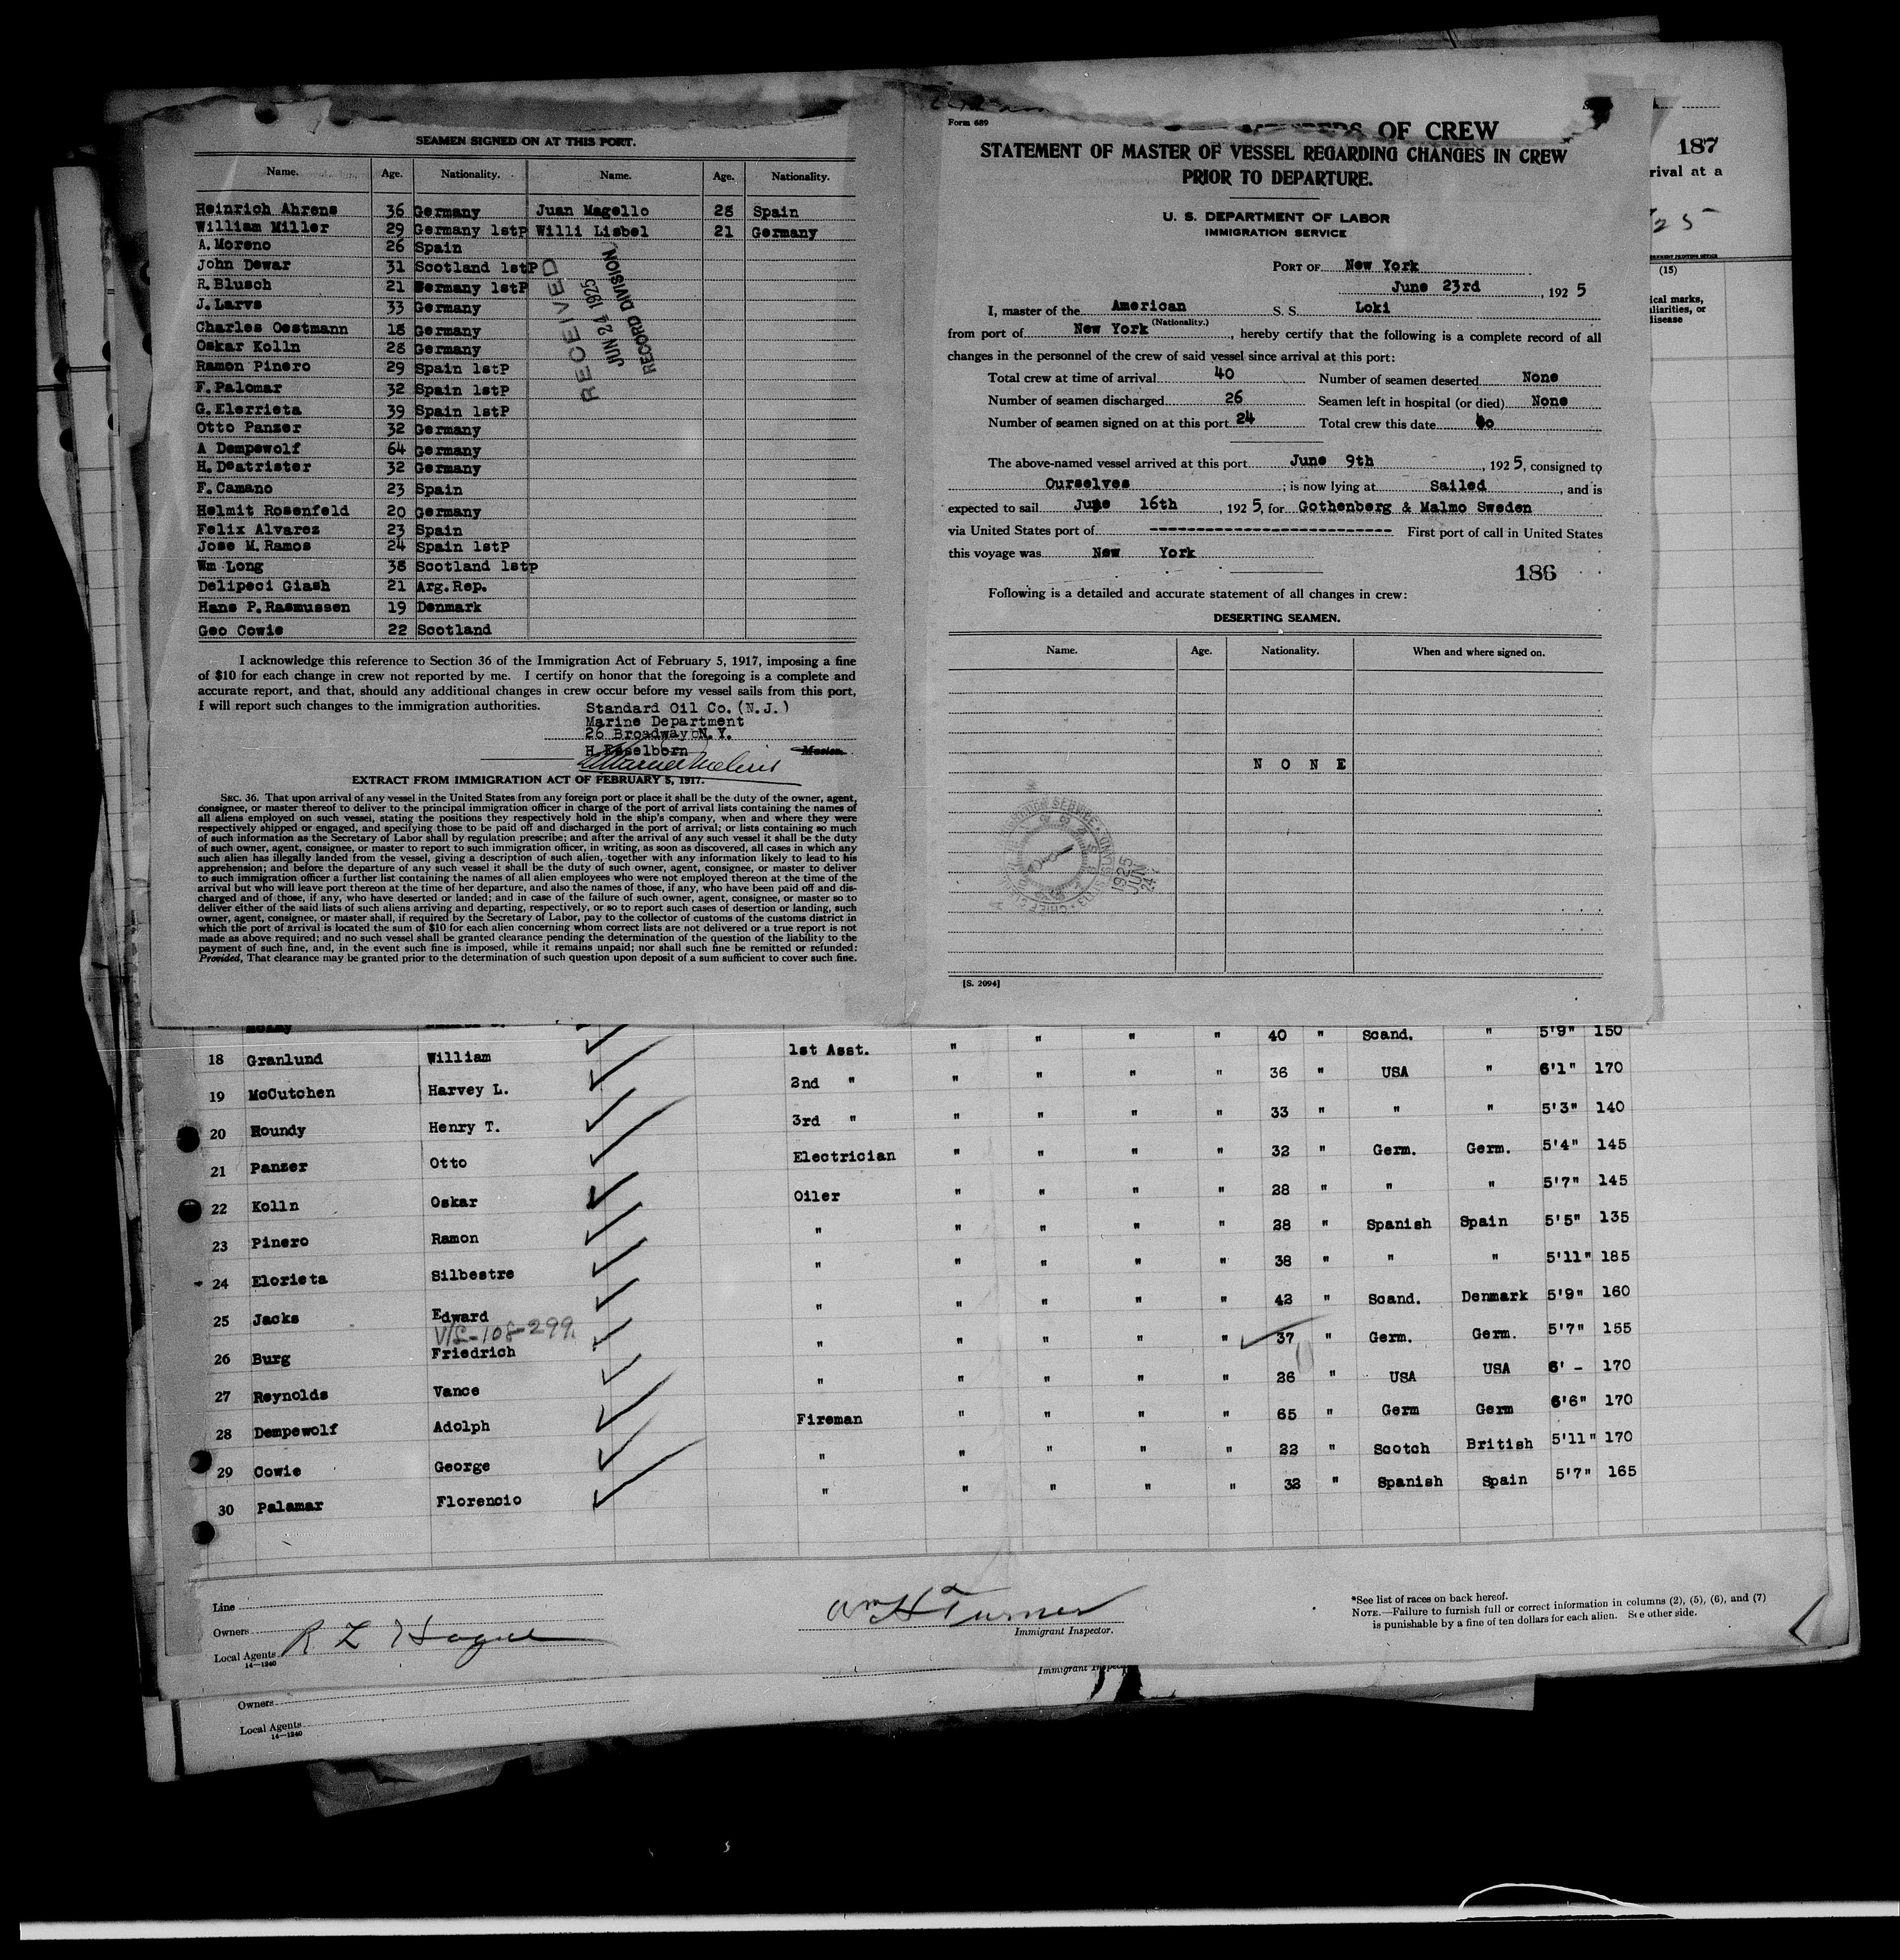 SEAMEN SIGNED ON AT THIS PORT.
Name. Age. Nationality. Name. Age. Nationality.
Heinrich Ahrens 36 Germany Juan Magello 28 Spain
William Miller 29 Germany 1stP Willi Lisbel 21 Germany
A. Moreno 26 Spain
John Dewar 31 Scotland 1stP
R. Blusch 21 Germany 1stP
J. Larvs 33 Germany
Charles Oestmann 18 Germany
Oskar Kolln 28 Germany
Ramon Pinero 29 Spain 1stP
F. Palomar 32 Spain 1stP
G. Elerrieta 39 Spain 1stP
Otto Panzer 32 Germany
A Dempewolf 64 Germany
H. Deatrister 32 Germany
F. Camano 23 Spain
Helmit Rosenfeld 20 Germany
Felix Alvarez 23 Spain
Jose M. Ramos 24 Spain 1stP
Wm Long 38 Scotland 1stp
Delipeci Giash 21 Arg. Rep.
Hans P. Rasmussen 19 Denmark
Geo Cowie 22 Scotland
RECEIVED
JUN 24 1925
RECORD DIVISION
I acknowledge this reference to Section 36 of the Immigration Act of February 5, 1917, imposing a fine
of $10 for each change in crew not reported by me. I certify on honor that the foregoing is a complete and
accurate report, and that, should any additional changes in crew occur before my vessel sails from this port,
I will report such changes to the immigration authorities.
Standard Oil Co. (N.J.)
Marine Department
26 Broadway N.Y.
H. Esselborn Master.
EXTRACT FROM IMMIGRATION ACT OF FEBRUARY 5, 1917.
SEC. 36. That upon arrival of any vessel in the United States from any foreign port or place it shall be the duty of the owner, agent,
consignee, or master thereof to deliver to the principal immigration officer in charge of the port of arrival lists containing the names of
all aliens employed on such vessel, stating the positions they respectively hold in the ship's company, when and where they were
respectively shipped or engaged, and specifying those to be paid off and discharged in the port of arrival; or lists containing so much
of such information as the Secretary of Labor shall by regulation prescribe; and after the arrival of any such vessel it shall be the duty
of such owner, agent, consignee, or master to report to such immigration officer, in writing, as soon as discovered, all cases in which any
such alien has illegally landed from the vessel, giving a description of such alien, together with any information likely to lead to his
apprehension; and before the departure of any such vessel it shall be the duty of such owner, agent, consignee, or master to deliver
to such immigration officer a further list containing the names of all alien employees who were not employed thereon at the time of the
arrival but who will leave port thereon at the time of her departure, and also the names of those, if any, who have been paid off and dis-
charged and of those, if any, who have deserted or landed; and in case of the failure of such owner, agent, consignee, or master so to
deliver either of the said lists of such aliens arriving and departing, respectively, or so to report such cases of desertion or landing, such
owner, agent, consignee, or master shall, if required by the Secretary of Labor, pay to the collector of customs of the customs district in
which the port of arrival is located the sum of $10 for each alien concerning whom correct lists are not delivered or a true report is not
made as above required; and no such vessel shall be granted clearance pending the determination of the question of the liability to the
payment of such fine, and, in the event such fine is imposed, while it remains unpaid; nor shall such fine be remitted or refunded:
Provided, That clearance may be granted prior to the determination of such question upon deposit of a sum sufficient to cover such fine.
Form 689
OF CREW
STATEMENT OF MASTER OF VESSEL REGARDING CHANGES IN CREW
PRIOR TO DEPARTURE.
U. S. DEPARTMENT OF LABOR
IMMIGRATION SERVICE
PORT OF New York
June 23rd, 1925
I, master of the American S. S. Loki
(Nationality.)
from port of New York, hereby certify that the following is a complete record of all
changes in the personnel of the crew of said vessel since arrival at this port:
Total crew at time of arrival 40 Number of seamen deserted None
Number of seamen discharged 26 Seamen left in hospital (or died) None
Number of seamen signed on at this port 24 Total crew this date 40
The above-named vessel arrived at this port June 9th, 1925, consigned to
Ourselves; is now lying at Sailed, and is
expected to sail June 16th, 1925, for Gothenberg & Malmo Sweden
via United States port of -------------------------- First port of call in United States
this voyage was New York
186
Following is a detailed and accurate statement of all changes in crew:
DESERTING SEAMEN.
Name. Age. Nationality. When and where signed on.
N O N E
1925
JUN
24
[S. 2094]
187
rival at a
25
(15)
ical marks,
uliarities, or
disease
40 " Scand. " 5'9" 150
18 Granlund William 1st Asst. " " " " 36 " USA " 6'1" 170
19 McCutchen Harvey L. 2nd " " " " " 33 " " " 5'3" 140
20 Houndy Henry T. 3rd " " " " " 32 " Germ. Germ. 5'4" 145
21 Panzer Otto Electrician " " " " 28 " " " 5'7" 145
22 Kolln Oskar Oiler " " " " 28 " Spanish Spain 5'5" 135
23 Pinero Ramon " " " " " 38 " " " 5'11" 185
24 Elorieta Silbestre " " " " " 42 " Scand. Denmark 5'9" 160
25 Jacks Edward " " " " " 37 " Germ. Germ. 5'7" 155
V/L-108-299.
26 Burg Friedrich " " " " " 26 " USA USA 6' - 170
27 Reynolds Vance " " " " " 65 " Germ Germ 6'6" 170
28 Dempewolf Adolph Fireman " " " " 22 " Scotch British 5'11" 170
29 Cowie George " " " " " 32 " Spanish Spain 5'7" 165
30 Palamar Florencio " " " " "
Line
Owners
Local Agents R L Hague
14—1240
Wm H Turner
Immigrant Inspector.
*See list of races on back hereof.
NOTE.—Failure to furnish full or correct information in columns (2), (5), (6), and (7)
is punishable by a fine of ten dollars for each alien. See other side.
Immigrant Inspec
Owners
Local Agents
14—1240